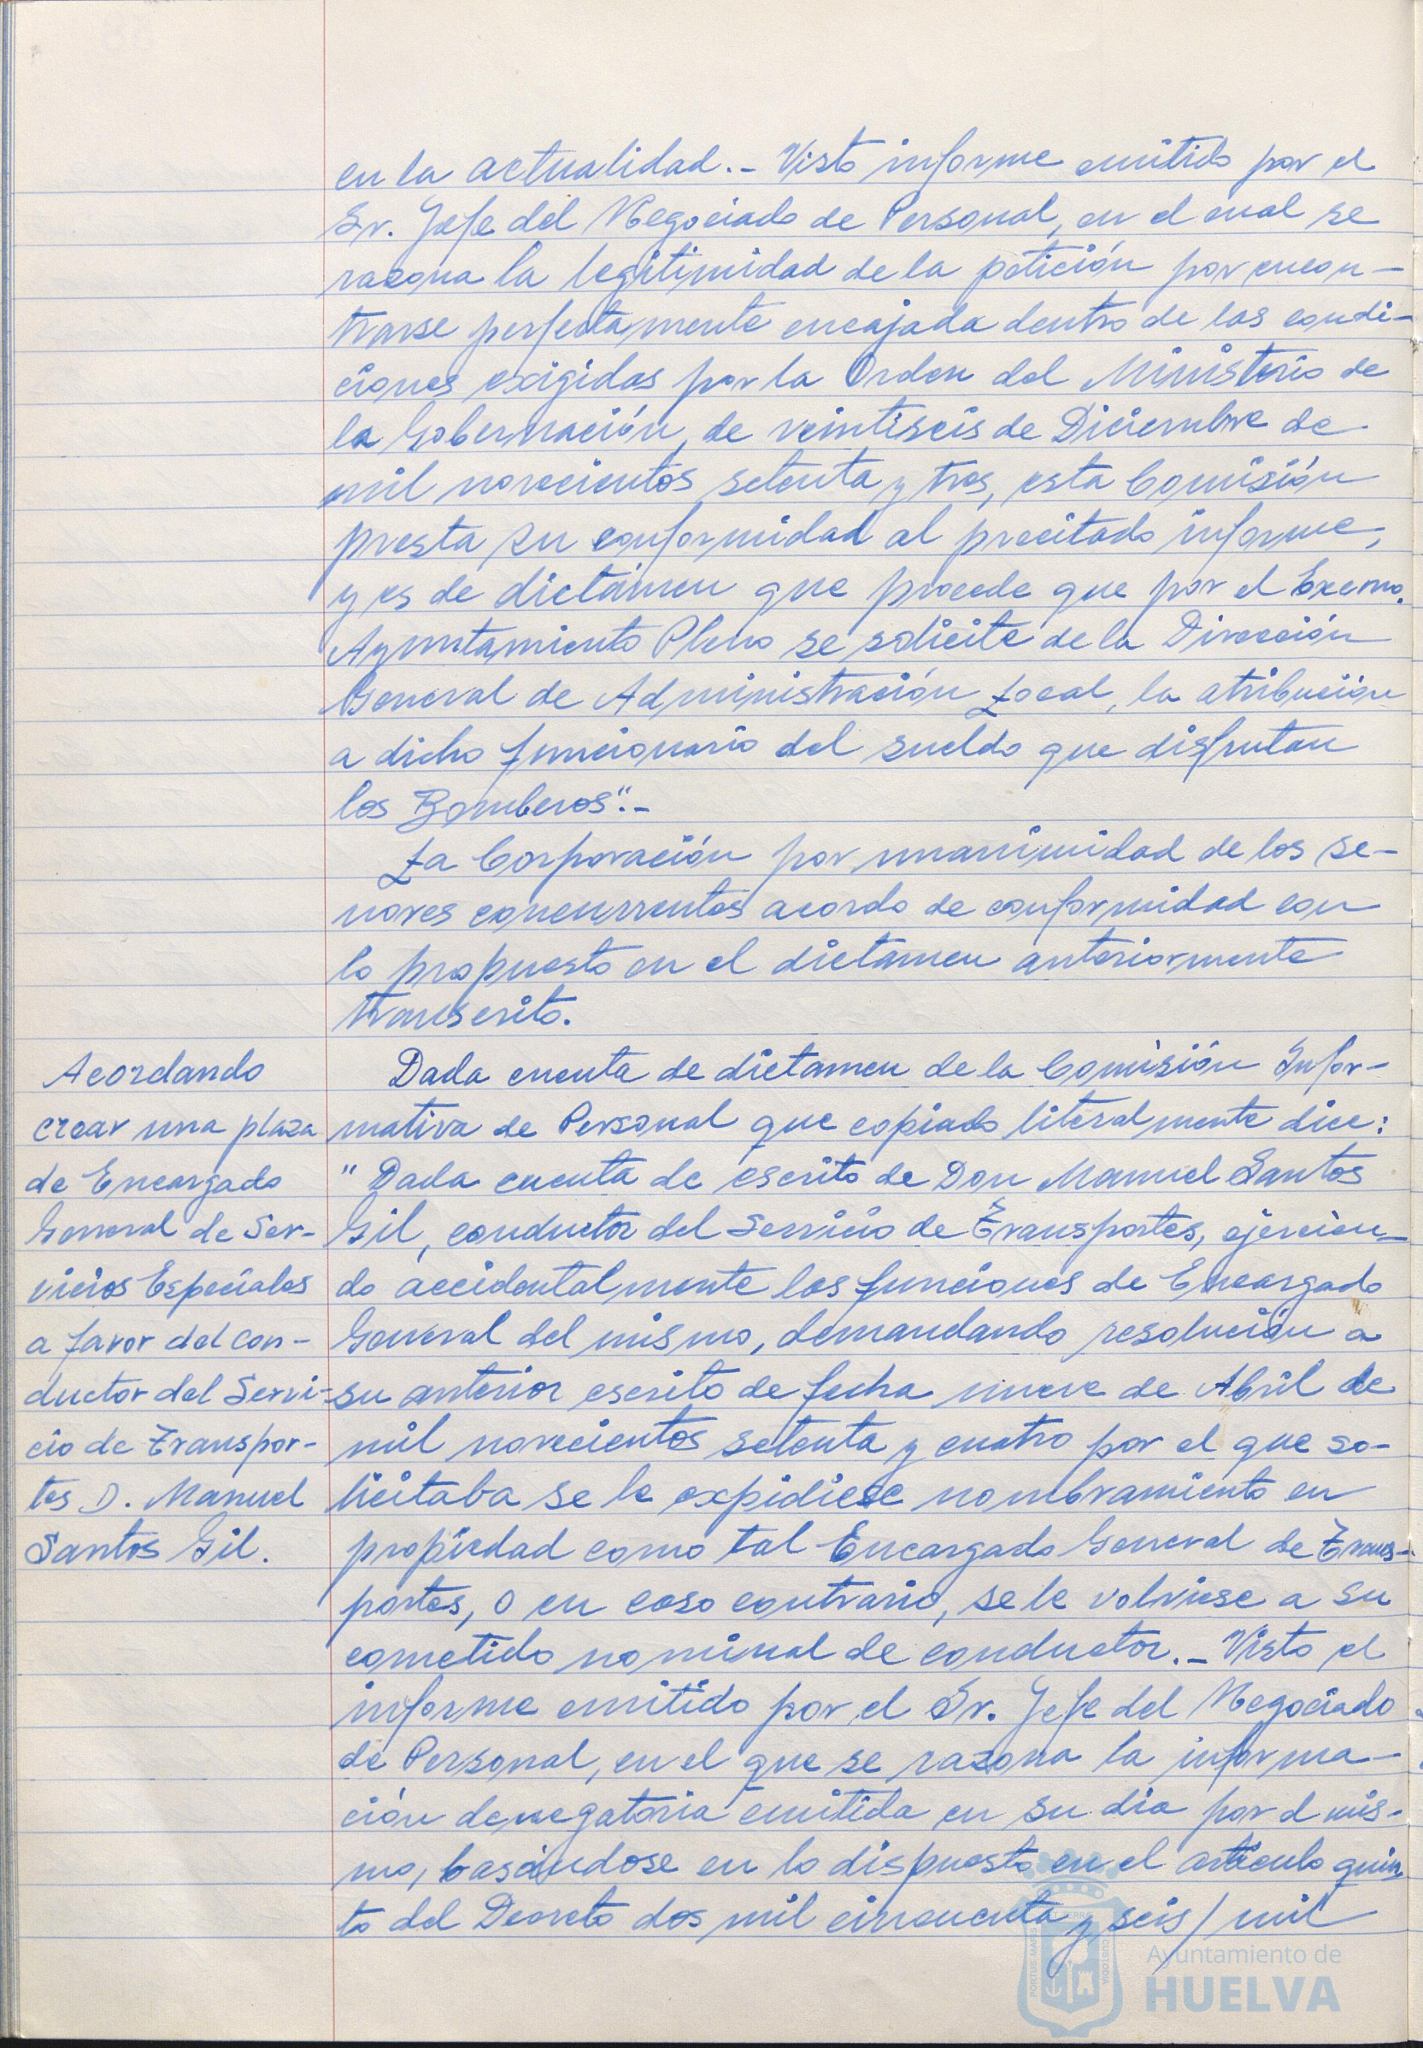 en la actualidad.- Visto informe emitido por el
Sr. Jefe del Negociado de Personal, en el cual se
razona la legitimidad de la petición por encon-
trarse perfectamente encajada dentro de las condi-
ciones exigidas por la Orden del Ministerio de
la Gobernación, de veintiseis de Diciembre de
mil novecientos setenta y tres, esta Comisión
presta su conformidad al precitado informe,
y es de dictámen que procede que por el Excmo.
Ayuntamiento Pleno se solicite de la Dirección
General de Administración Local, la atribución
a dicho funcionario del sueldo que disfrutan
los Bomberos".-
La Corporación por unanimidad de los se-
nores concurrentes acordo de conformidad con
lo propuesto en el dictamen anteriormente
transcrito.
Acordando
crear una plaza
de Encargado
General de Ser-
vicios Especiales
a favor del con-
ductor del Servi-
cio de Transpor-
tes D. Manuel
Santos Gil.
Dada cuenta de dictamen de la Comisión Infor-
mativa de Personal que copiado literalmente dice:
"Dada cuenta de escrito de Don Manuel Santos
Gil, conductor del Servicio de Transportes, ejercien-
do accidentalmente las funciones de Encargado
General del mismo, demandando resolución a
su anterior escrito de fecha nueve de Abril de
mil novecientos setenta y cuatro por el que so-
licitaba se le expidiese nombramiento en
propiedad como tal Encargado General de Trans-
portes, o en caso contrario, se le volviese a su
cometido nominal de conductor.- Visto el
informe emitido por el Sr. Jefe del Negociado
de Personal, en el que se razona la informa-
ción denegatoria emitida en su dia por el mis-
mo, basándose en lo dispuesto en el artículo quin
to del Decreto dos mil cincuenta y seis/mil
Ayuntamiento de
HUELVA